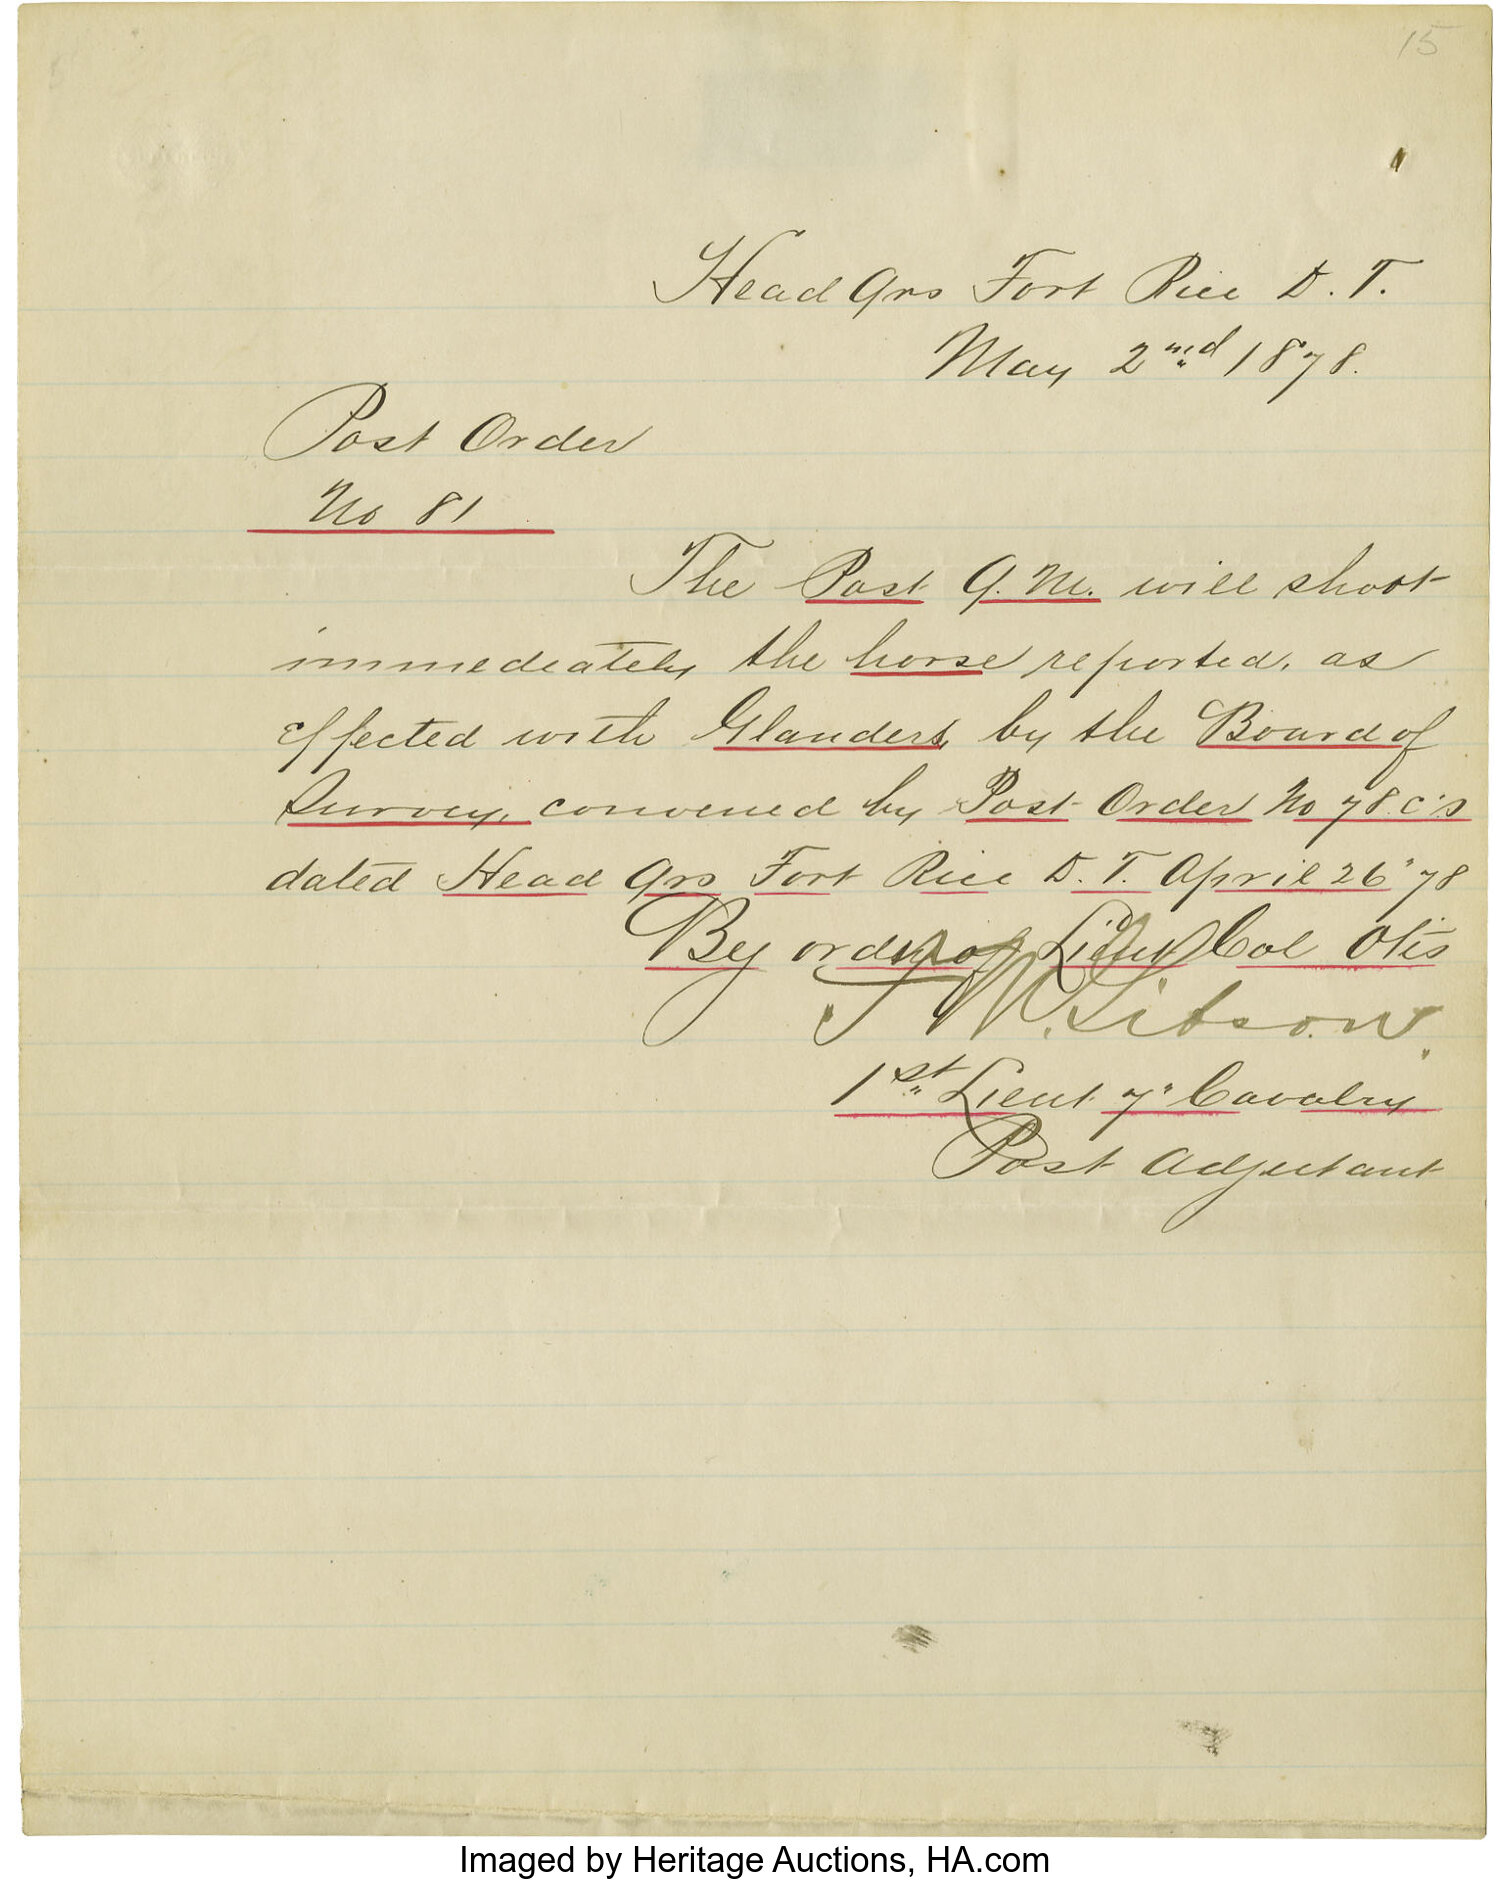 15
Head Qrs Fort Rice D. T.
May 2nd 1878.
Post Order
No 81
The Post Q. M. will shoot
immediately the horse reported, as
effected with Glanders, by the Board of
Survey, convened by Post Order No 78 C.S
dated Head Qrs Fort Rice D. T. April 26" 78
By order of Lieut Col Otis
F M. Gibson.
1st Lieut 7" Cavalry
Post Adjutant
Imaged by Heritage Auctions, HA.com